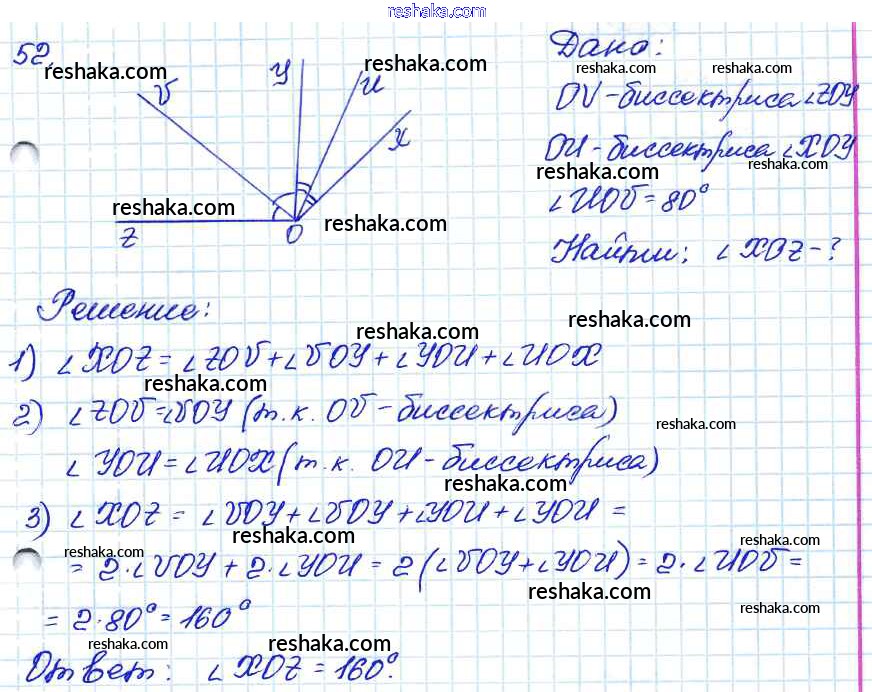 reshaka.com
52.
reshaka.com
V
У
reshaka.com
U
X
reshaka.com
reshaka.com
Z
O
Дано:
reshaka.com reshaka.com
OV - биссектриса ∠ZOY
OU - биссектриса ∠XOY
reshaka.com reshaka.com
∠UOV = 80°
reshaka.com
Найти: ∠XOZ - ?
Решение:
reshaka.com reshaka.com
1) ∠XOZ = ∠ZOV + ∠VOY + ∠YOU + ∠UOX
reshaka.com
2) ∠ZOV = ∠VOY (т.к. OV - биссектриса)
reshaka.com
∠YOU = ∠UOX (т.к. OU - биссектриса)
reshaka.com
3) ∠XOZ = ∠VOY + ∠VOY + ∠YOU + ∠YOU =
reshaka.com reshaka.com reshaka.com
= 2·∠VOY + 2·∠YOU = 2(∠VOY + ∠YOU) = 2·∠UOV =
reshaka.com
= 2·80° = 160°
reshaka.com
reshaka.com reshaka.com
Ответ: ∠XOZ = 160°.
reshaka.com